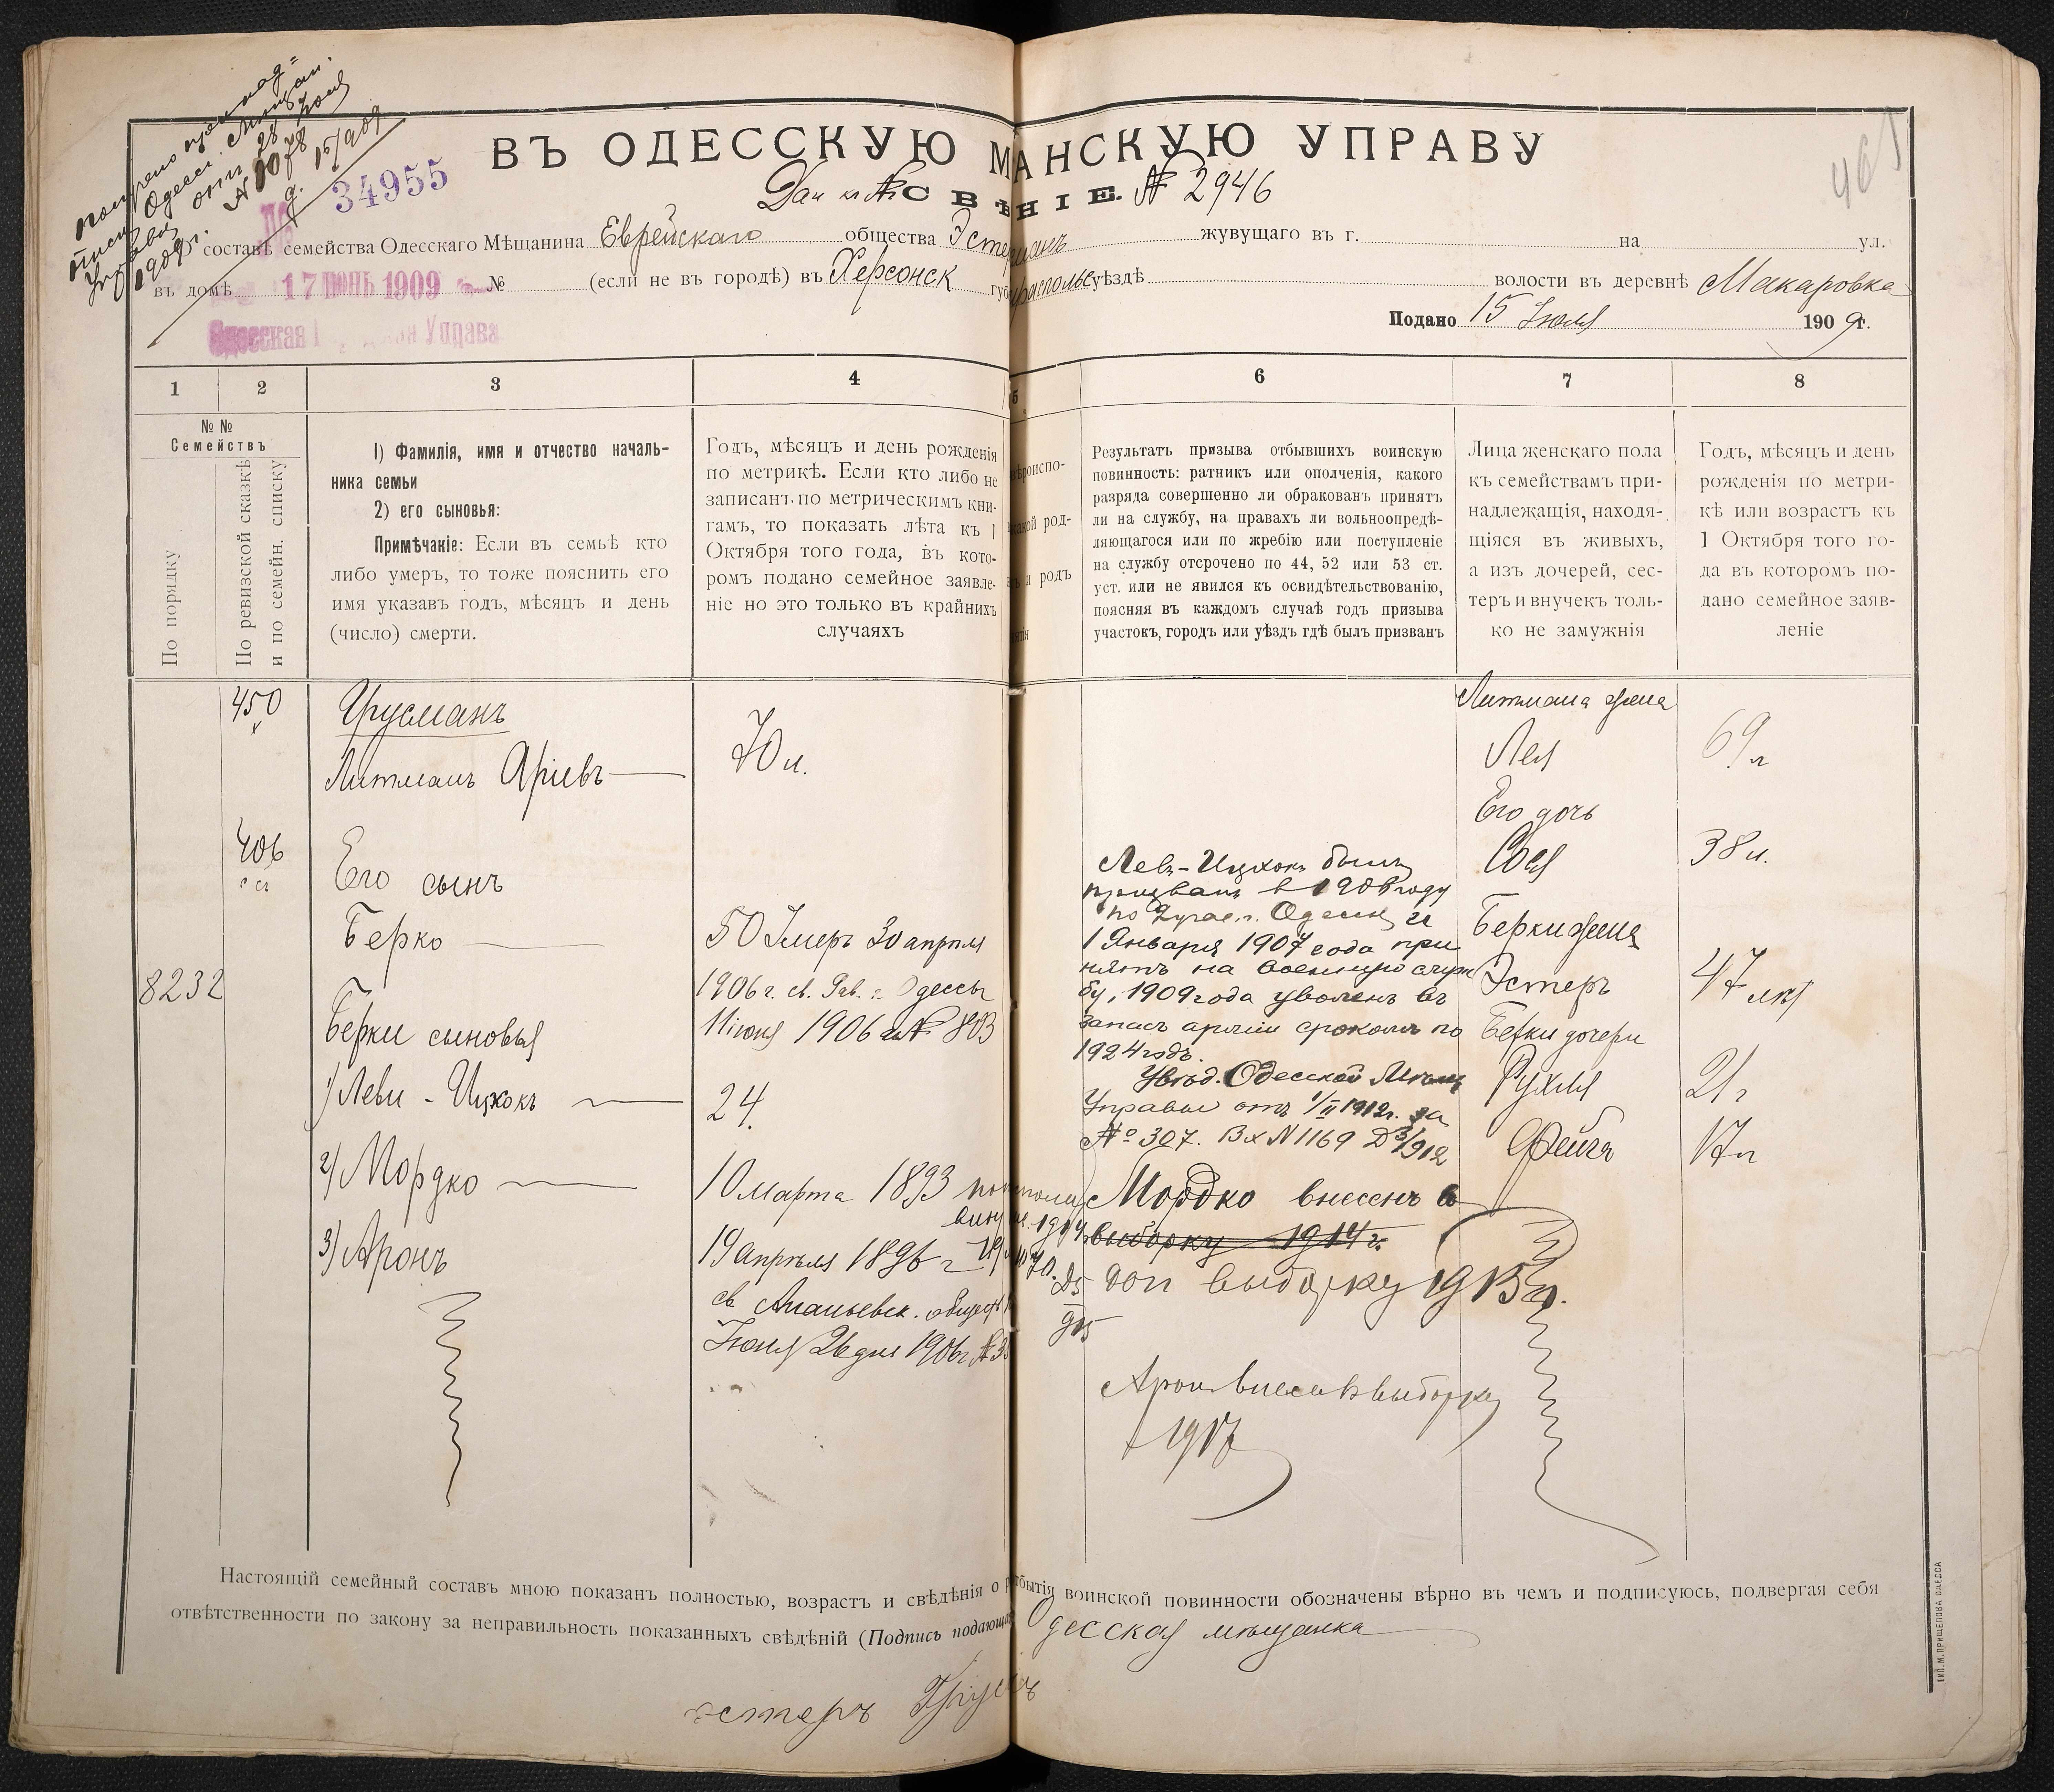 ВЪ ОДЕССКУЮ М АНСКУЮ УПРАВУ
34955
№ 2946
составѣ семейства Одесскаго Мѣщанина Еврейскаго общества жувущаго въ г. на ул.
въ домѣ № (если не въ городѣ) въ Херсонск губ уѣздѣ волости въ деревнѣ Макаровка
17 ІЮНЬ 1909
Подано 15 Іюля 1909 г.
Одесская Управа
1 2 3 4 5 6 7 8
№ №
Семействъ
По порядку
По ревизской сказкѣ
и по семейн. списку
1) Фамилія, имя и отчество началь-
ника семьи
2) его сыновья:
Примѣчакіе: Если въ семьѣ кто
либо умеръ, то тоже пояснить его
имя указавъ годъ, мѣсяцъ и день
(число) смерти.
Годъ, мѣсяцъ и день рожденія
по метрикѣ. Если кто либо не
записанъ по метрическимъ кни-
гамъ, то показать лѣта къ 1
Октября того года, въ кото-
ромъ подано семейное заявле-
ніе но это только въ крайнихъ
случаяхъ
Результатъ призыва отбывшихъ воинскую
повинность: ратникъ или ополченія, какого
разряда совершенно ли обракованъ принятъ
ли на службу, на правахъ ли вольноопредѣ-
ляющагося или по жребію или поступленіе
на службу отсрочено по 44, 52 или 53 ст.
уст. или не явился къ освидѣтельствованію,
поясняя въ каждомъ случаѣ годъ призыва
участокъ, городъ или уѣздъ гдѣ былъ призванъ
Лица женскаго пола
къ семействамъ при-
надлежащія, находя-
щіяся въ живыхъ,
а изъ дочерей, сес-
теръ и внучекъ толь-
ко не замужнія
Годъ, мѣсяцъ и день
рожденія по метри-
кѣ или возрастъ къ
1 Октября того го-
да въ котором по-
дано семейное заяв-
леніе
450
Грусманъ
Литманъ Аріевъ
70 л.
Литмана жена
Лея
69 л
Его дочь
Сося
38 л.
406
Его сынъ
Берко
50 Умеръ 30 апрѣля
1906 г. св. Рав. г. Одессы
11 іюня 1906 г. № 803
8232
Берки сыновья
1) Леви - Ицкокъ
24.
2) Мордко
10 марта 1893
3) Аронъ
19 апрѣля 1896 г
св Ананьевск.
Іюня 26 дня 1906 г №
Левъ-Ицхокъ былъ
призванъ в 1906 году
по г. Одессы и
1 Января 1907 года при
нятъ на военную служ
бу, 1909 года уволенъ въ
запасъ арміи срокомъ по
1924 годъ.
Увѣд. Одесской Мѣщ
Управы отъ 1/II 1912 г. за
№ 307. Вх N 1169 Д 3/912
Мордко внесенъ в
выборку 1914 г.
доп выборку 1915 г.
Аронъ внесенъ выборку
1917
Берки жена
Эстеръ
47 лѣт
Берки дочери
Рухля
21 г
Фейга
17 л
Настоящій семейный составъ мною показанъ полностью, возрастъ и свѣдѣнія о отбытіи воинской повинности обозначены вѣрно въ чемъ и подписуюсь, подвергая себя
отвѣтственности по закону за неправильность показанныхъ свѣдѣній (Подпись подающаго Одесская мѣщанка
Эстеръ
ТИП. М. ПРИЩЕПОВА ОДЕССА